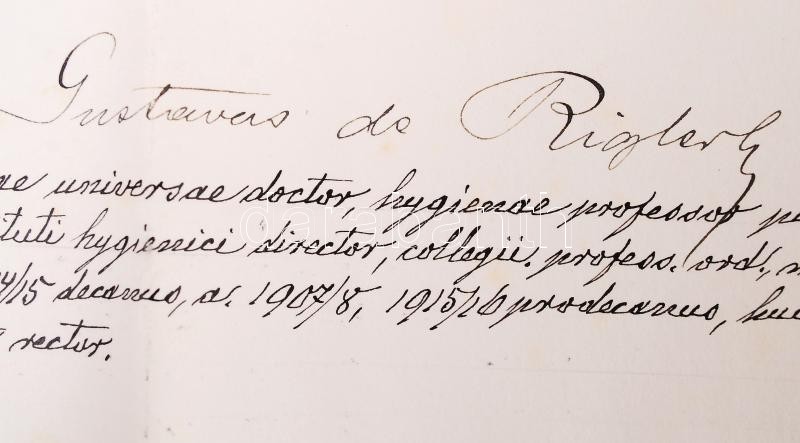 Gustavus de Rigler
ae universae doctor, hygienae professor pu
tuti hygienici director, collegii. profess. ord.,
4/15 decanus, a. 1907/8, 1915/16 prodecanus, hui
rector.
darabanth